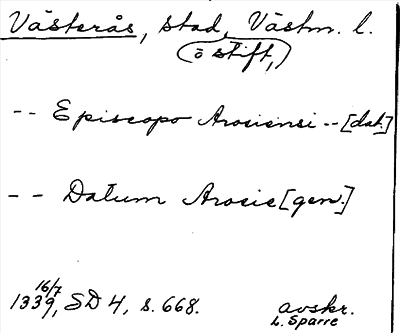 Västerås, stad, Västm. l.
(o stift,)
-- Episcopo Arosiensi -- [dat.]
-- Datum Arosie [gen.]
16/7
1339, SD 4, s. 668. avskr.
L. Sparre